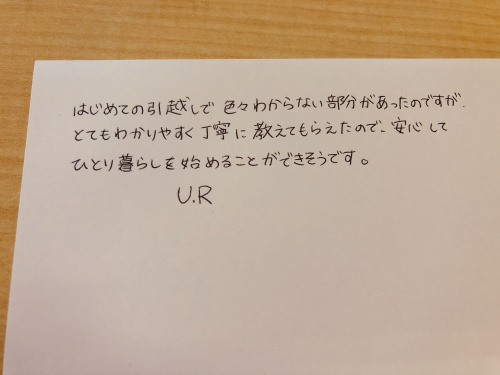 はじめての引越しで色々わからない部分があったのですが、
とてもわかりやすく丁寧に教えてもらえたので、安心して
ひとり暮らしを始めることができそうです。
U.R